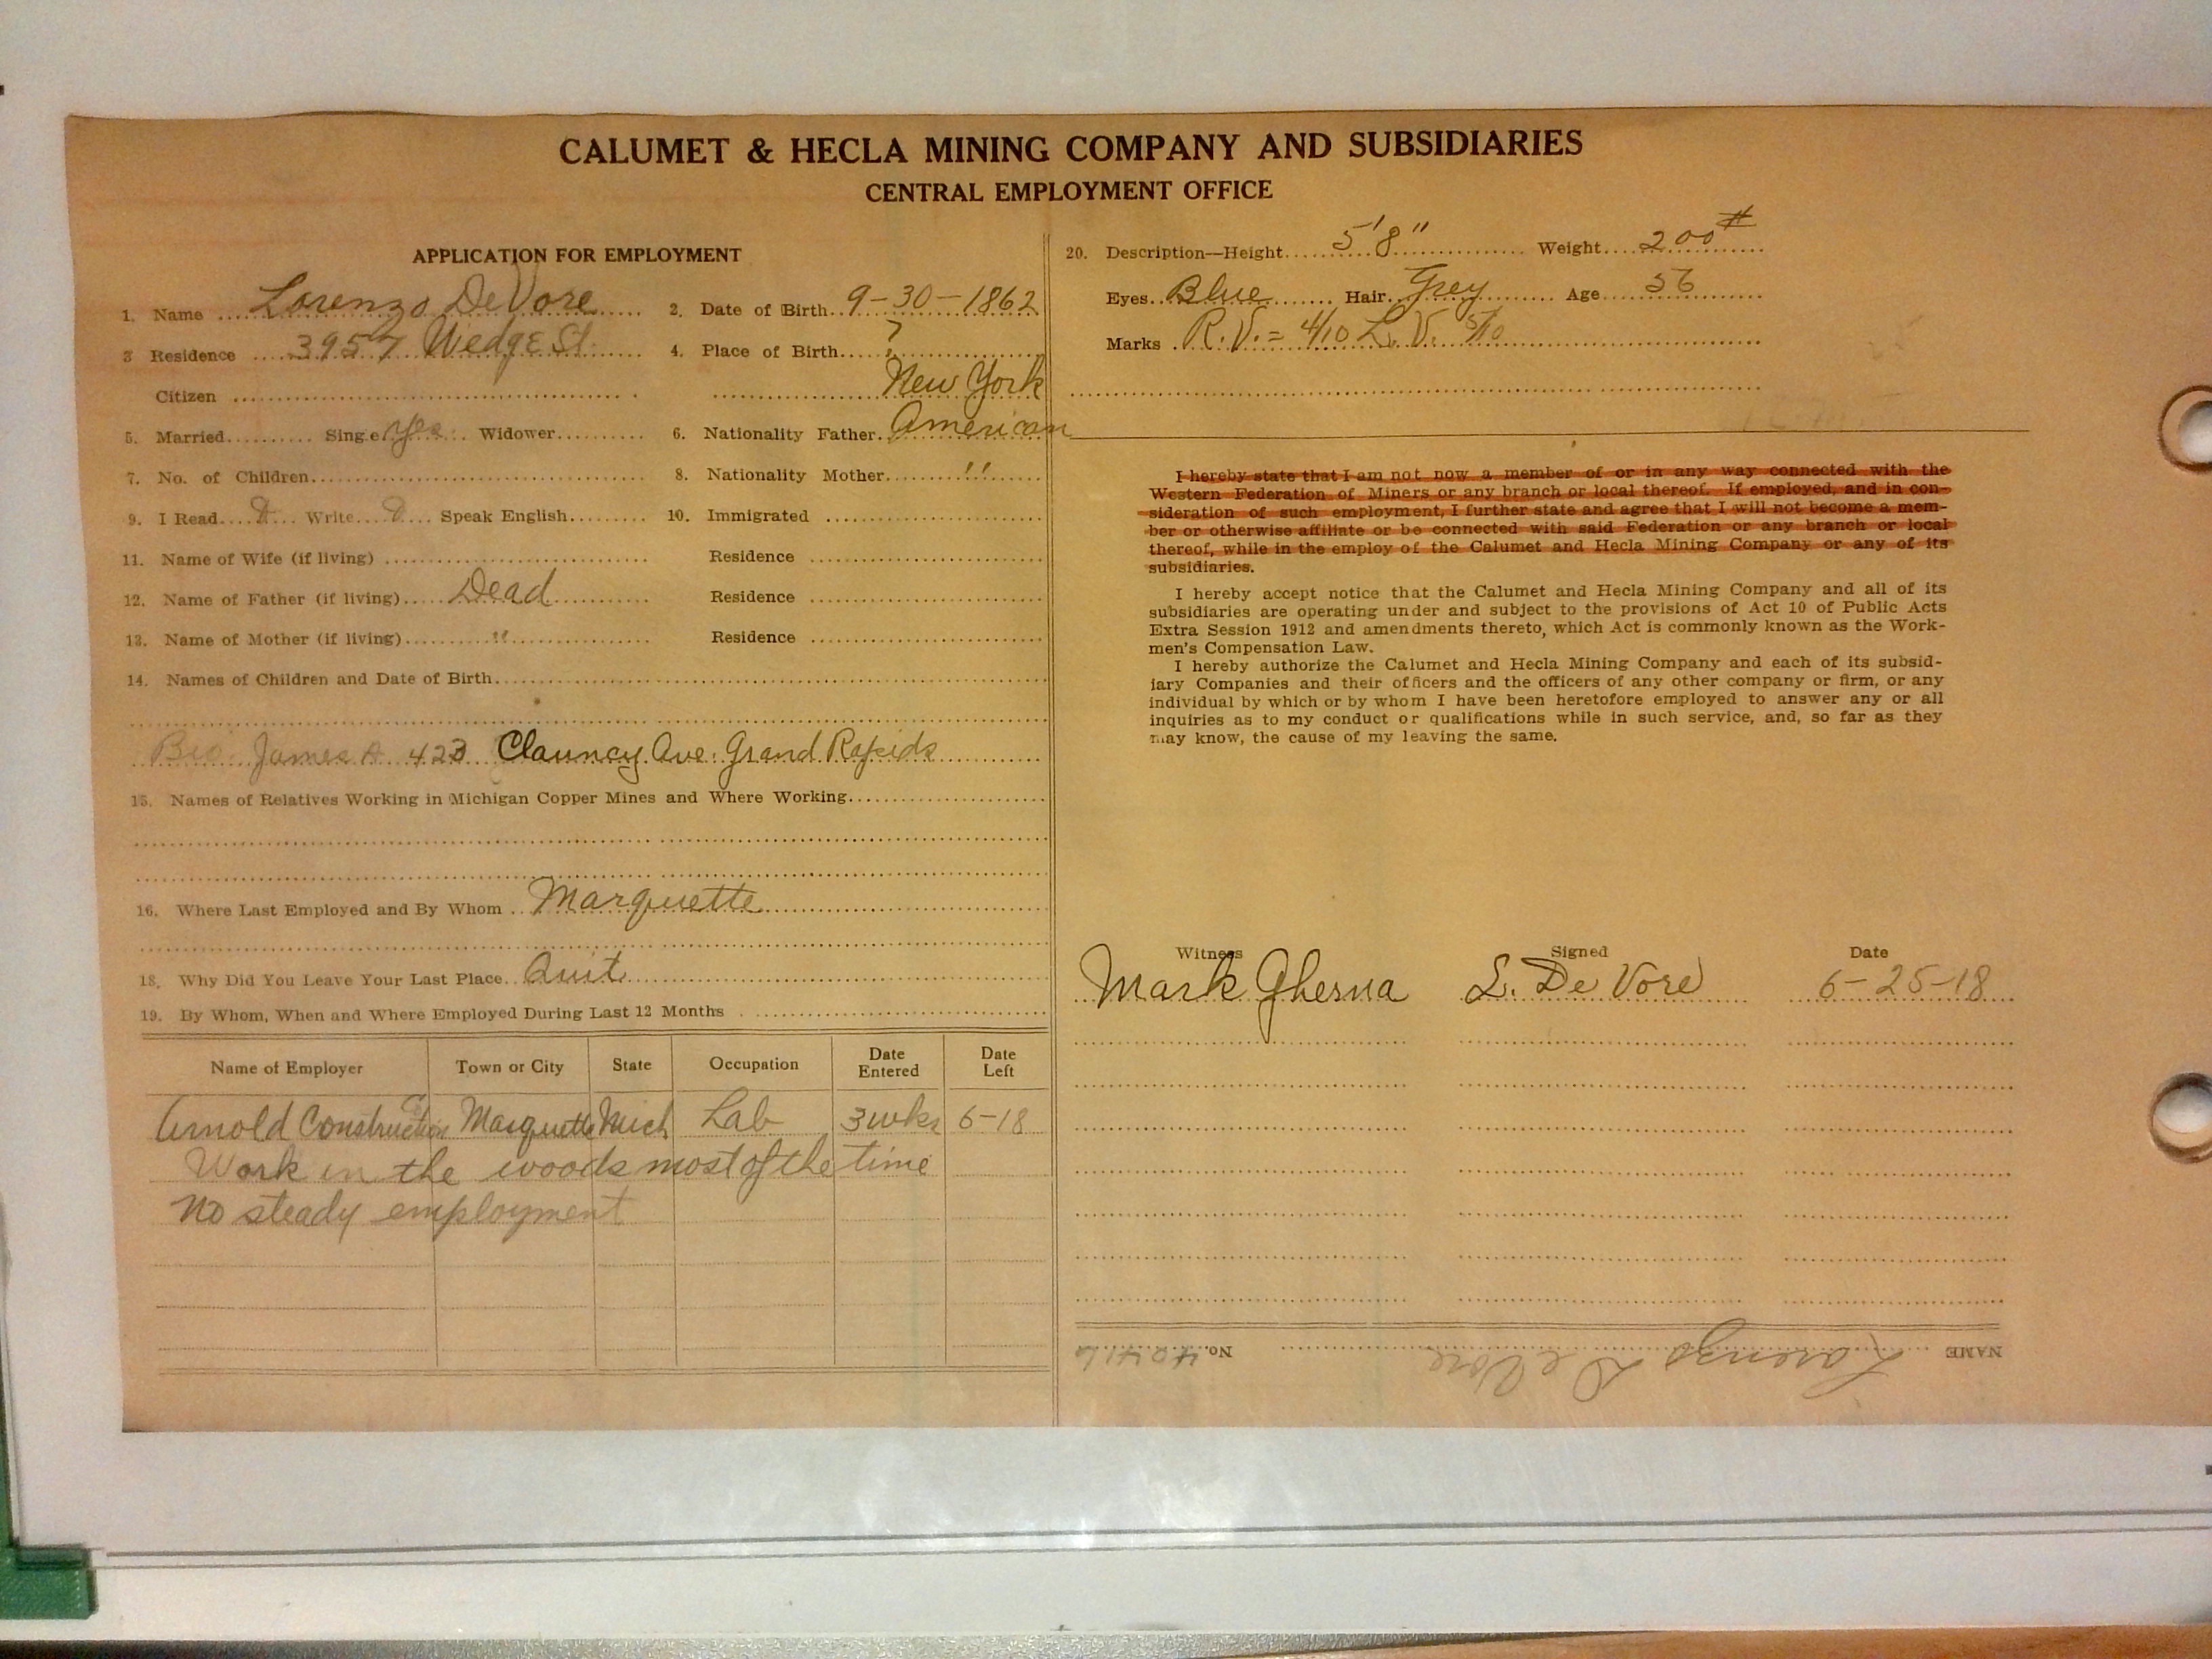 CALUMET & HECLA MINING COMPANY AND SUBSIDIARIES
CENTRAL EMPLOYMENT OFFICE
APPLICATION FOR EMPLOYMENT
1. Name Lorenzo DeVore 2. Date of Birth 9-30-1862
3 Residence 3957 Wedge St. 4. Place of Birth ?
Citizen New York
5. Married Single Yes Widower 6. Nationality Father American
7. No. of Children 8. Nationality Mother "
9. I Read Write Speak English 10. Immigrated
11. Name of Wife (if living) Residence
12. Name of Father (if living) Dead Residence
13. Name of Mother (if living) " Residence
14. Names of Children and Date of Birth
Bro. James A 423 Clauncy Ave. Grand Rapids
15. Names of Relatives Working in Michigan Copper Mines and Where Working
16. Where Last Employed and By Whom Marquette
18. Why Did You Leave Your Last Place Quit
19. By Whom, When and Where Employed During Last 12 Months
Name of Employer Town or City State Occupation Date Entered Date Left
Arnold Construction Co Marquette Mich Lab 3 wks 6-18
Work in the woods most of the time
No steady employment
20. Description—Height 5'8" Weight 200#
Eyes Blue Hair Grey Age 56
Marks R.V. = 4/10 L.V. 5/10
I hereby state that I am not now a member of or in any way connected with the
Western Federation of Miners or any branch or local thereof. If employed, and in con-
sideration of such employment, I further state and agree that I will not become a mem-
ber or otherwise affiliate or be connected with said Federation or any branch or local
thereof, while in the employ of the Calumet and Hecla Mining Company or any of its
subsidiaries.
I hereby accept notice that the Calumet and Hecla Mining Company and all of its
subsidiaries are operating under and subject to the provisions of Act 10 of Public Acts
Extra Session 1912 and amendments thereto, which Act is commonly known as the Work-
men's Compensation Law.
I hereby authorize the Calumet and Hecla Mining Company and each of its subsid-
iary Companies and their officers and the officers of any other company or firm, or any
individual by which or by whom I have been heretofore employed to answer any or all
inquiries as to my conduct or qualifications while in such service, and, so far as they
may know, the cause of my leaving the same.
Witness Signed Date
Mark Gherna L. De Vore 6-25-18
NAME Lorenzo DeVore No.